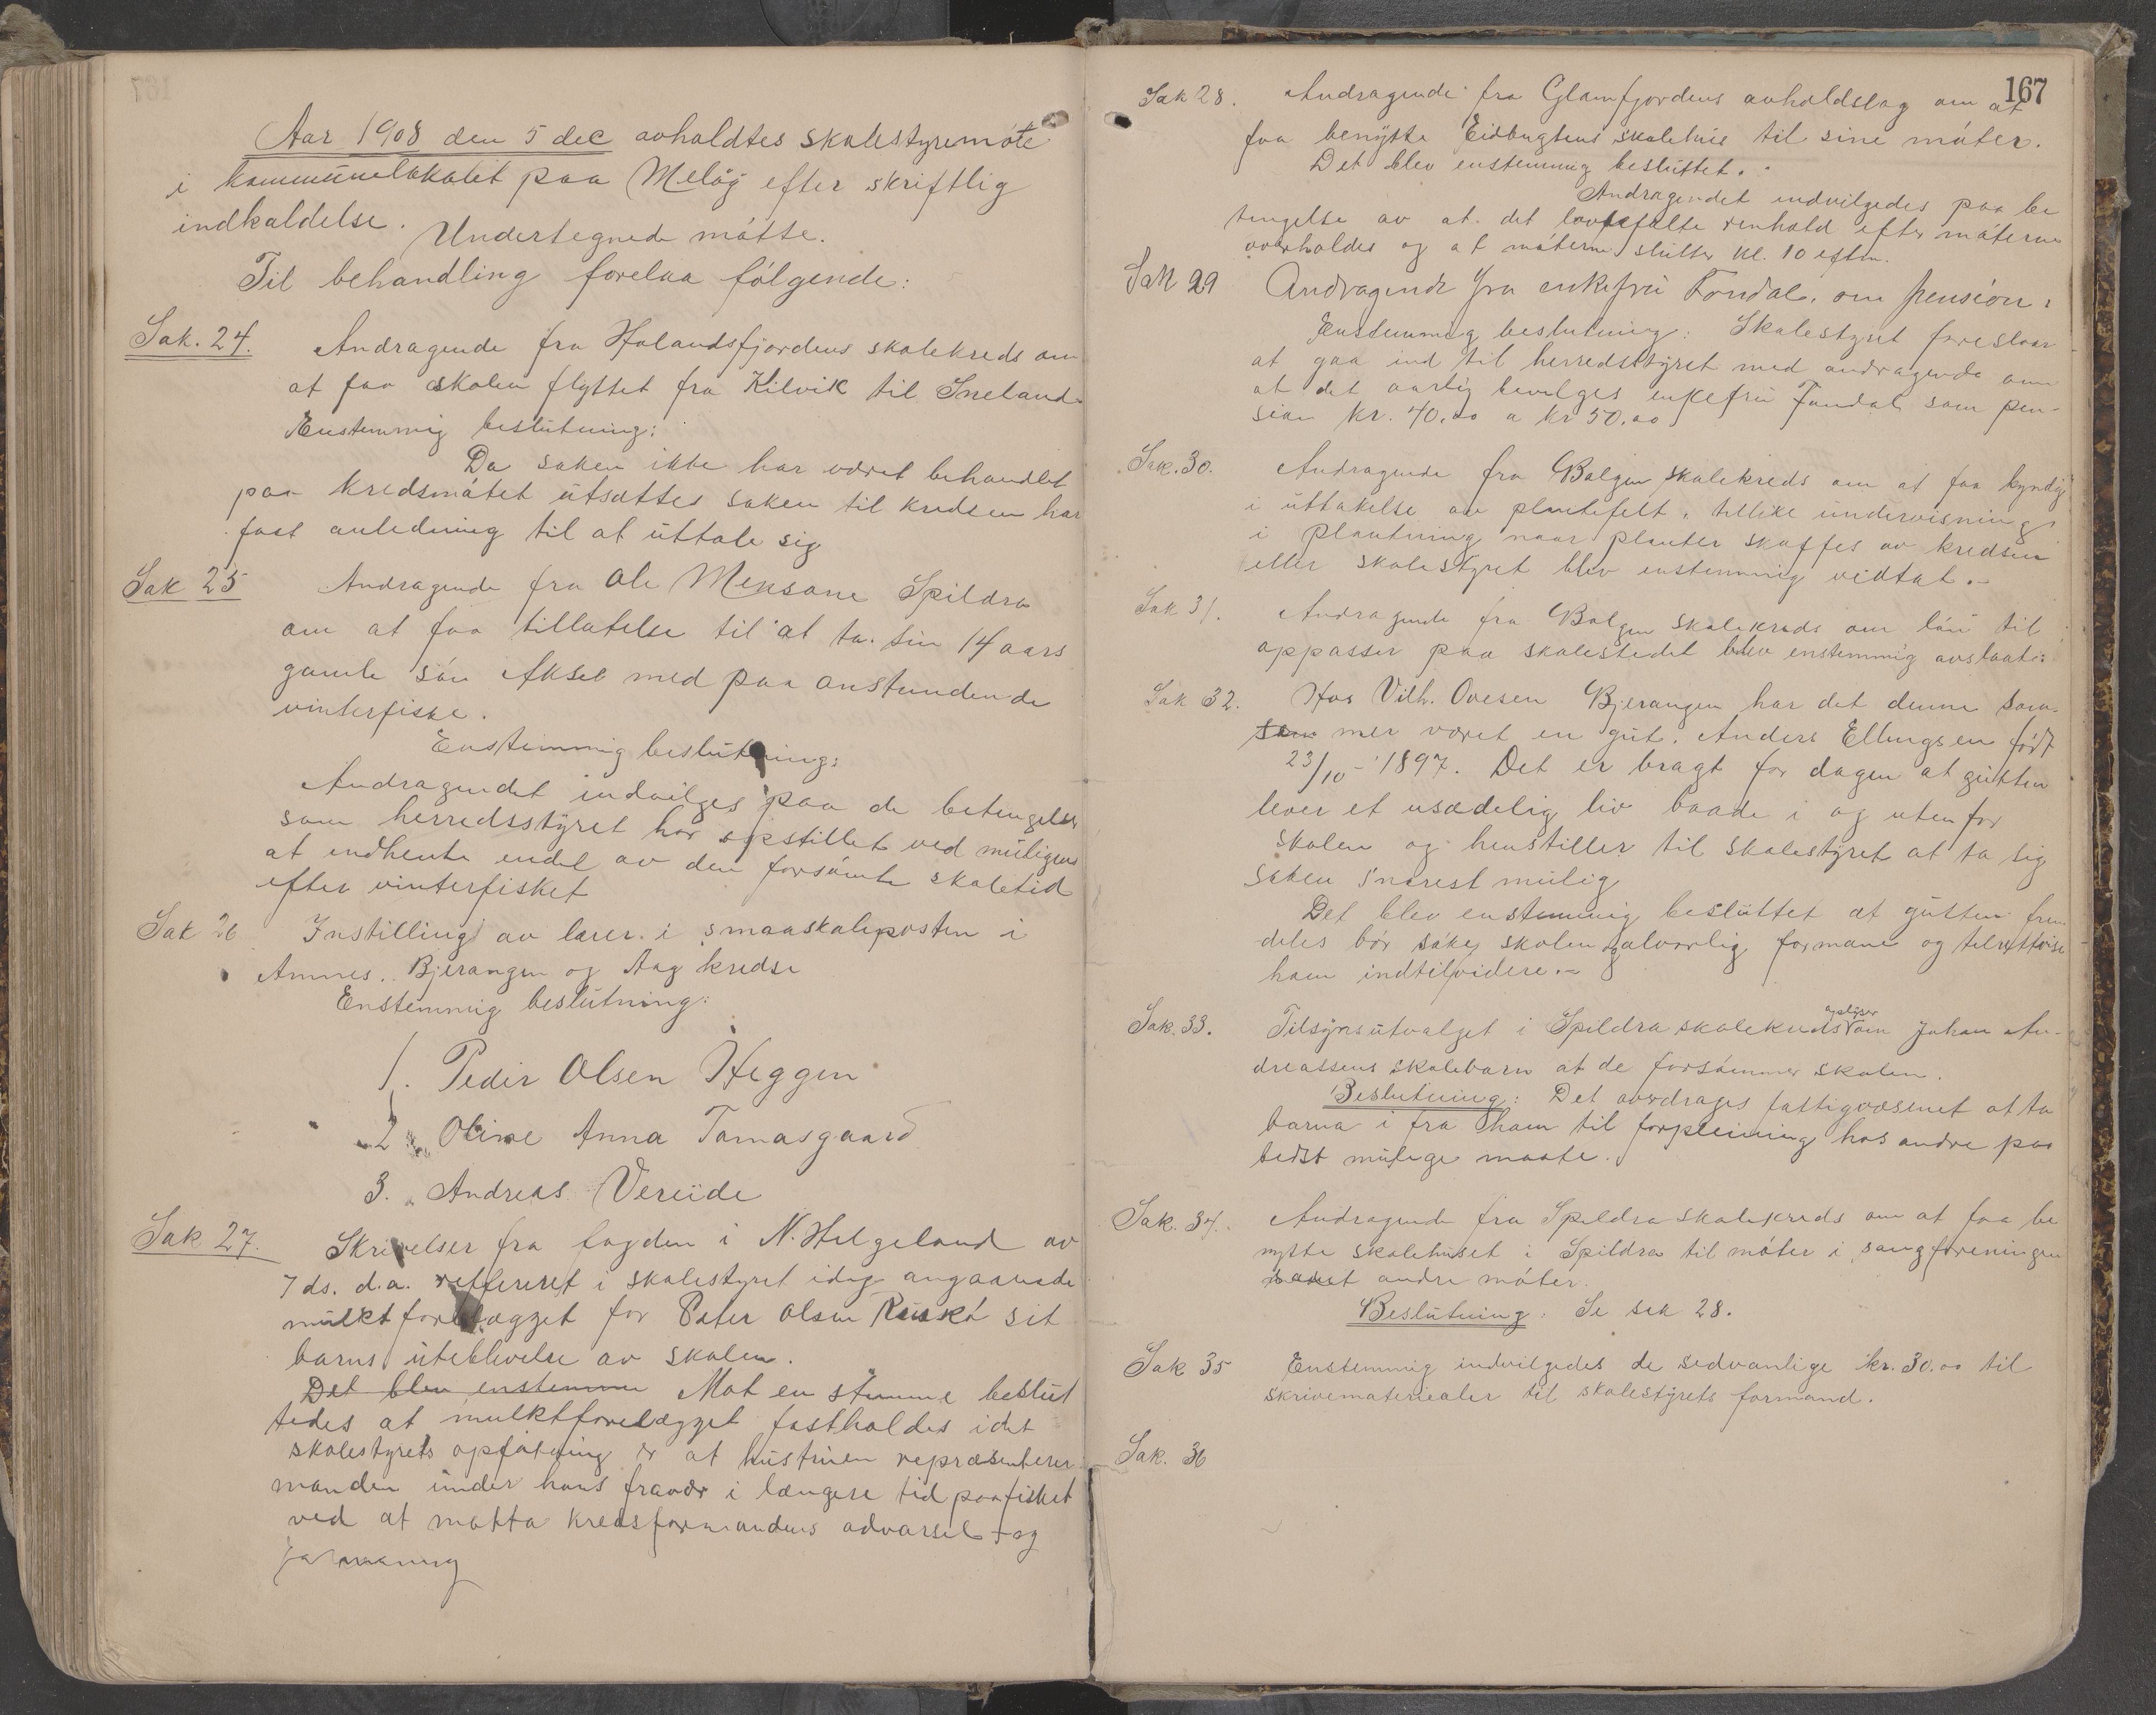 Aar 1908 den 5 dec avholdtes skolestyremøte
i kommunelokalet paa Meløy efter skriftlig
indkaldelse. Undertegnede møtte.
Til behandling forelaa følgende:
Sak. 24. Andragende fra Holandsfjordens skolekreds om
at faa skolen flyttet fra Kilvik til Sneland.
Enstemmig beslutning:
Da saken ikke har været behandlet
paa kredsmøtet utsættes saken til kredsen har
faat anledning til at uttale sig
Sak 25 Andragende fra Ole Mensone Spildra
om at faa tillatelse til at ta sin 14 aars
gamle søn Aksel med paa anstundende
vinterfiske.
Enstemmig beslutning:
Andragendet indvilges paa de betingelser
som herredsstyret har opstillet ved muligens
at indhente endel av den forsømte skoletid
efter vinterfisket
Sak 26 Instilling av lærer i smaaskoleposten i
Amnes. Bjerangen og Aag kredse
Enstemmig beslutning:
1. Peder Olsen Heggen
2. Oline Anna Tomasgaard
3. Andreas Vereide
Sak 27. Skrivelser fra fogden i N. Helgeland av
7 ds. d.a. reffereret i skolestyret idag angaaende
mulktforelægget for Peter Olsen sit
barns uteblivelse av skolen.
Det blev enstemm Mot en stemme beslut
tedes at mulktforelægget fastholdes idet
skolestyrets opfatning er at hustruen repræsenterer
manden under hans fravær i længere tid paa fisket
ved at motta kredsformandens advarsel og
formaning
167
Sak 28. Andragende fra Glamfjordens avholdslag om at
faa benytte Eidbugtens skolehus til sine møter.
Det blev enstemmig besluttet.
Andragendet indvilgedes paa be
tingelse av at det lovbefalte renhold efter møterne
overholdes og at møterne slutter kl. 10 eftm.
Sak 29 Andragende fra enkefru Fondal. om pension.
Enstemmig beslutning: Skolestyret foreslaar
at gaa ind til herredsstyret med andragende om
at det aarlig bevilges enkefru Fondal som pen-
sion kr. 40.00 a kr 50.00
Sak. 30. Andragende fra Bolgen skolekreds om at faa kyndig
i uttakelse av plantefelt, tillike undervisning
i plantning naar planter skaffes av kredsen
eller skolestyret blev enstemmig vedtat.-
Sak 31. Andragende fra Bolgen skolekreds om løn til
oppasser paa skolestedet blev enstemmig avslaat.
Sak 32. Hos Vilh. Ovesen Bjerangen har det denne som-
som mer været en gut. Anders Ellingsen født
23/10-1897. Det er bragt for dagen at gutten
lever et usædelig liv baade i og utenfor
skolen og henstiller til skolestyret at ta sig
saken snarest mulig
Det blev enstemmig besluttet at gutten frem
deles bør søke skolen og alvorlig formane og tilrettevise
ham indtilvidere.-
Sak. 33. Tilsynsutvalget i Spildra skolekreds oplyser om Johan An-
dreassens skolebarn at de forsømmer skolen.
Beslutning: Det overdrages fattigvæsenet at ta
barna i fra ham til forpleining hos andre paa
bedst mulige maate.
Sak. 34. Andragende fra Spildra skolekreds om at faa be
nytte skolehuset i Spildra til møter i sangforeningen
samt andre møter.
Beslutning: Se sak 28.
Sak 35 Enstemmig indvilgedes de sedvanlige kr. 30.00 til
skrivematerialer til skolestyrets formand.
Sak. 36